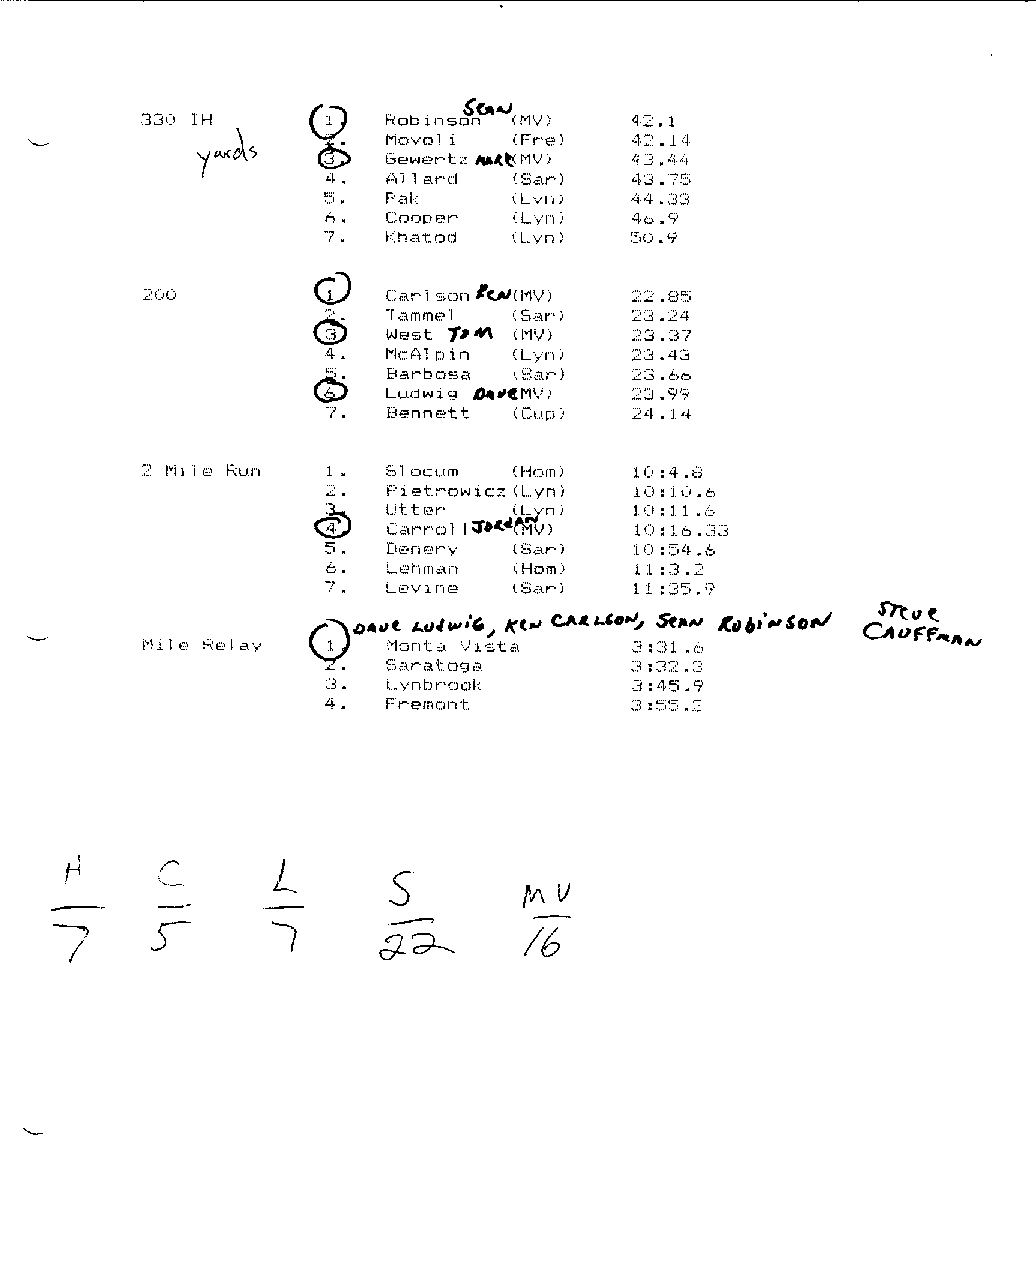 330 IH 1. Robinson SEAN (MV) 42.1
yards 2. Movoli (Fre) 42.14
3. Gewertz MARK (MV) 43.44
4. Allard (Sar) 43.75
5. Pak (Lyn) 44.33
6. Cooper (Lyn) 46.9
7. Khatod (Lyn) 50.9
200 1. Carlson KEN (MV) 22.85
2. Tammel (Sar) 23.24
3. West TOM (MV) 23.37
4. McAlpin (Lyn) 23.43
5. Barbosa (Sar) 23.66
6. Ludwig DAVE (MV) 23.99
7. Bennett (Cup) 24.14
2 Mile Run 1. Slocum (Hom) 10:4.8
2. Pietrowicz (Lyn) 10:10.6
3. Utter (Lyn) 10:11.6
4. Carroll JORDAN (MV) 10:16.33
5. Denery (Sar) 10:54.6
6. Lehman (Hom) 11:3.2
7. Levine (Sar) 11:35.9
DAVE LUDWIG, KEN CARLSON, SEAN ROBINSON STEVE CAUFFMAN
Mile Relay 1. Monta Vista 3:31.6
2. Saratoga 3:32.3
3. Lynbrook 3:45.9
4. Fremont 3:55.2
H C L S MV
7 5 7 22 16